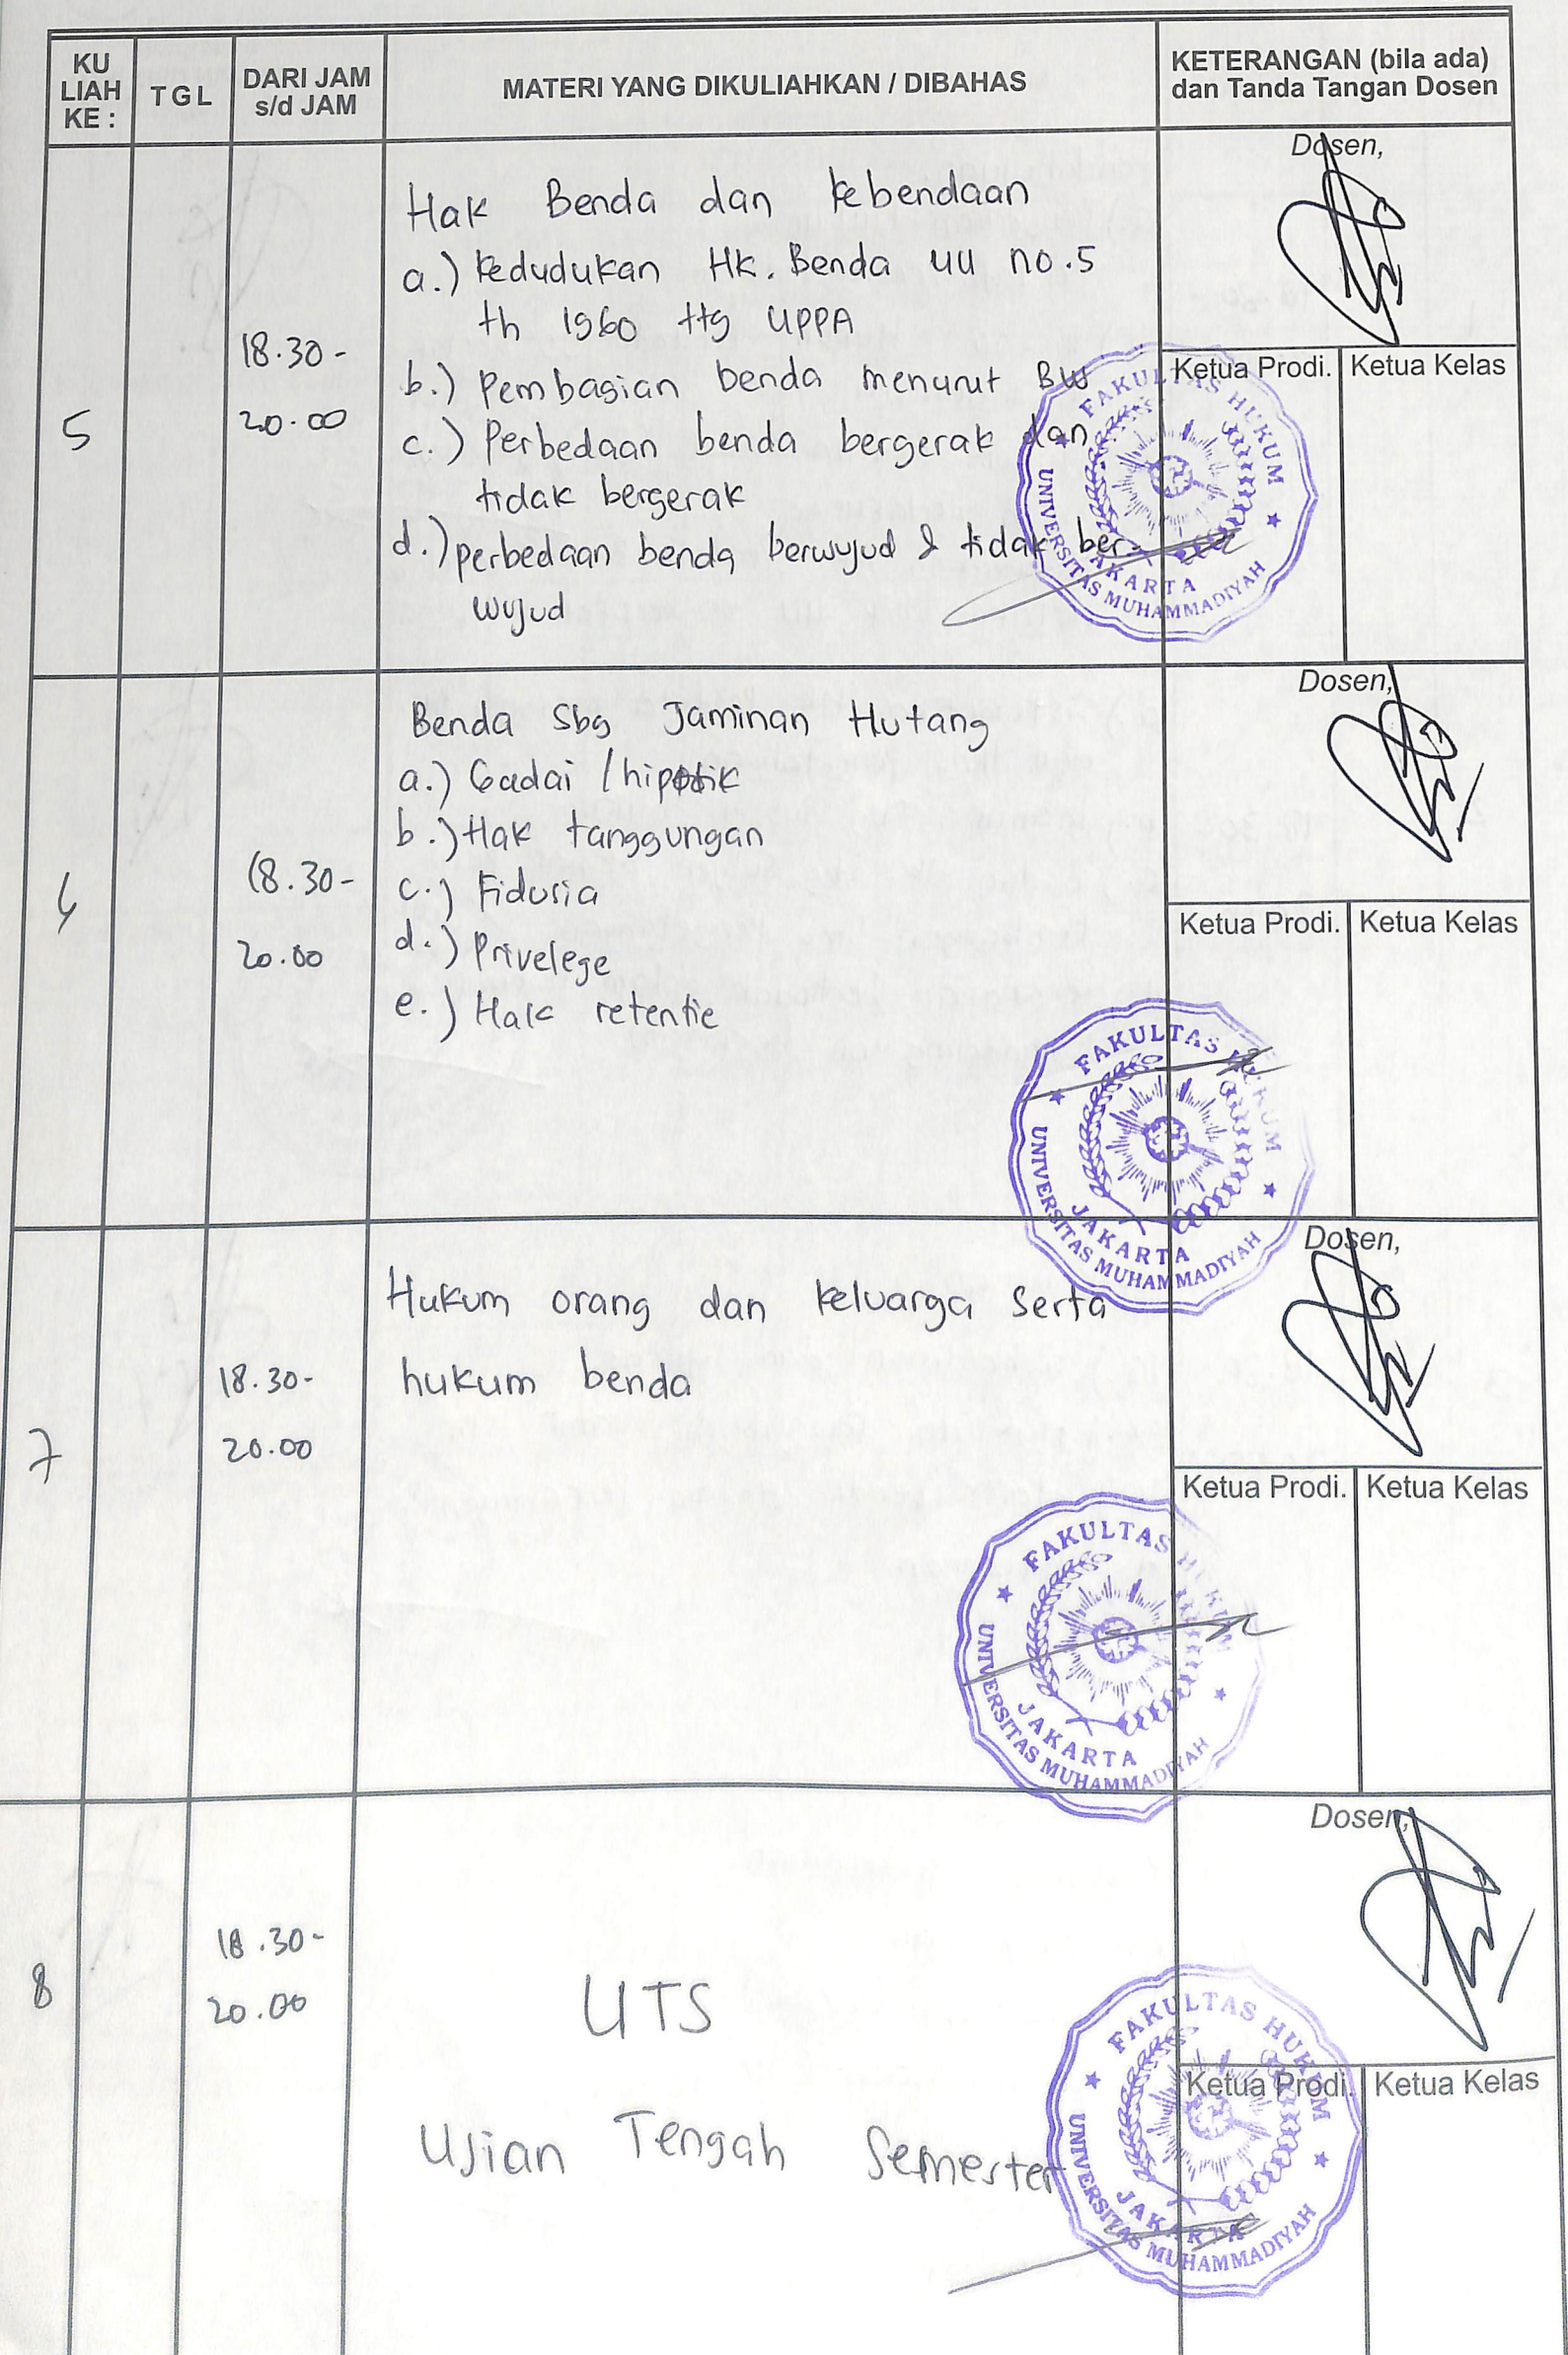 KU
LIAH
KE :
TGL
DARI JAM
s/d JAM
MATERI YANG DIKULIAHKAN / DIBAHAS
KETERANGAN (bila ada)
dan Tanda Tangan Dosen
5
18.30 -
20.00
Hak Benda dan kebendaan
a.) kedudukan Hk. Benda UU no.5
th 1960 ttg UPPA
b.) Pembagian benda menurut BW
c.) Perbedaan benda bergerak dan
tidak bergerak
d.) perbedaan benda berwujud & tidak ber-
wujud
Dosen,
Ketua Prodi.
Ketua Kelas
FAKULTAS HUKUM
UNIVERSITAS MUHAMMADIYAH
JAKARTA
6
18.30 -
20.00
Benda sbg Jaminan Hutang
a.) Gadai / hipotik
b.) Hak tanggungan
c.) Fidusia
d.) Privelege
e.) Hak retentie
Dosen,
Ketua Prodi.
Ketua Kelas
FAKULTAS HUKUM
UNIVERSITAS MUHAMMADIYAH
JAKARTA
7
18.30-
20.00
Hukum orang dan keluarga serta
hukum benda
Dosen,
Ketua Prodi.
Ketua Kelas
FAKULTAS HUKUM
UNIVERSITAS MUHAMMADIYAH
JAKARTA
8
18.30-
20.00
UTS
Ujian Tengah Semester
Dosen,
Ketua Prodi.
Ketua Kelas
FAKULTAS HUKUM
UNIVERSITAS MUHAMMADIYAH
JAKARTA